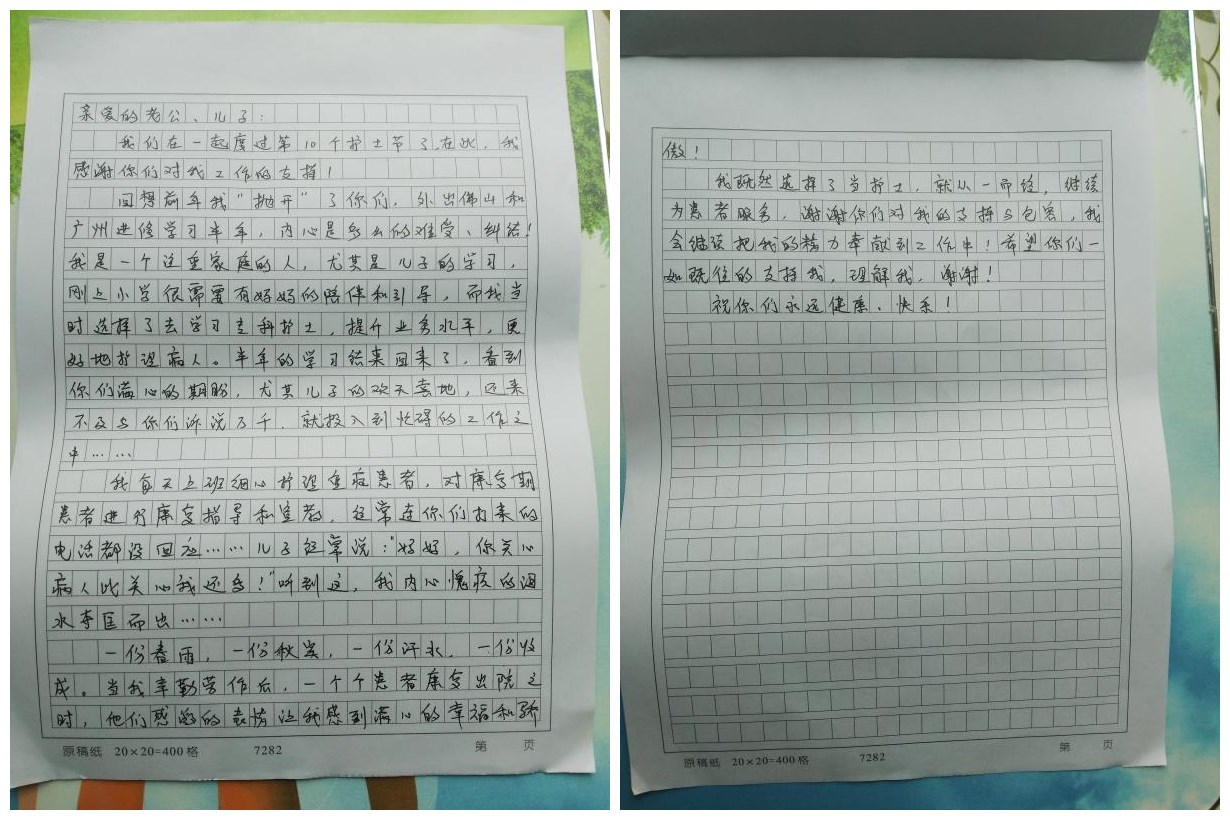 亲爱的老公、儿子：
我们在一起度过第10个护士节了，在此，我
感谢你们对我工作的支持！
回想前年我“抛开”了你们，外出佛山和
广州进修学习半年，内心是多么的难受、纠结！
我是一个注重家庭的人，尤其是儿子的学习，
刚上小学很需要有妈妈的陪伴和引导，而我当
时选择了去学习专科护士，提升业务水平，更
好地护理病人。半年的学习结束回来了，看到
你们满心的期盼，尤其儿子的欢天喜地，还来
不及与你们诉说万千，就投入到忙碌的工作之
中……
我每天上班细心护理重症患者，对康复期
患者进行康复指导和宣教，经常连你们打来的
电话都没回应……儿子经常说：“妈妈，你关心
病人比关心我还多！”听到这，我内心愧疚的泪
水夺匡而出……
一份春雨，一份秋实，一份汗水，一份收
成。当我辛勤劳作后，一个个患者康复出院之
时，他们感激的表情让我感到满心的幸福和骄
原稿纸 20×20=400格 7282 第 页
傲！
我既然选择了当护士，就从一而终，继续
为患者服务，谢谢你们对我的支持与包容，我
会继续把我的精力奉献到工作中！希望你们一
如既往的支持我，理解我，谢谢！
祝你们永远健康、快乐！
原稿纸 20×20=400格 7282 第 页